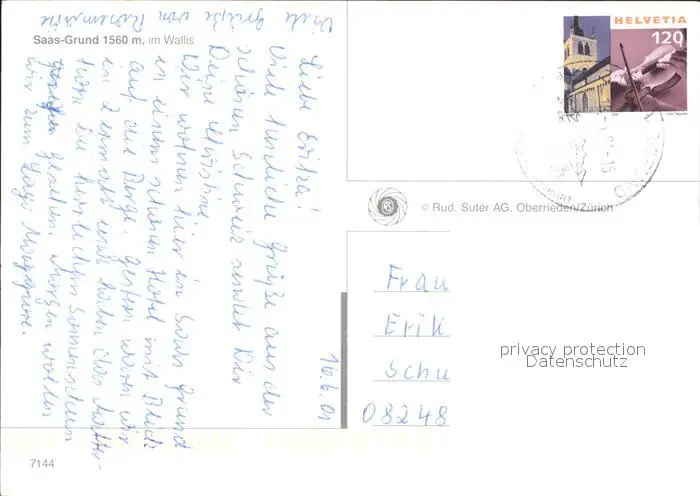 Saas-Grund 1560 m, im Wallis
HELVETIA
120
© Rud. Suter AG, Oberrieden/Zürich
16.6.01
Liebe Erika!
Viele herzliche Grüße aus der
schönen Schweiz sendet Dir
Deine Christine
Wir wohnen hier in Saas Grund
in einem schönen Hotel mit Blick
auf die Berge. Gestern waren wir
in Zermatt und haben das Matter-
horn bei herrlichem Sonnenschein
gesehen. Morgen wollen
wir zum Lago Maggiore.
Viele Grüße von Rosemarie
Frau
Erik
Schu
08248
privacy protection
Datenschutz
7144